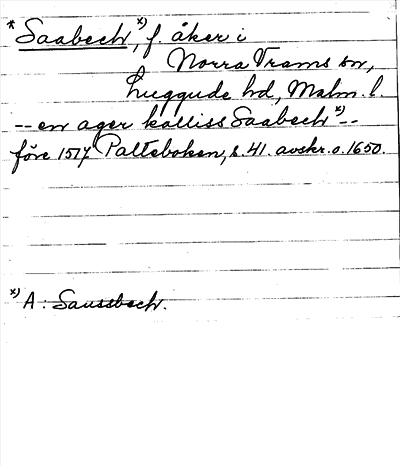 * Saabech, x) f. åker i
Norra Vrams sn,
Luggude hd, Malm. l.
-- en ager kalliss Saabech x) --
före 1517 Palteboken, s. 41. avskr. o. 1650.
x) A: Saussbech.